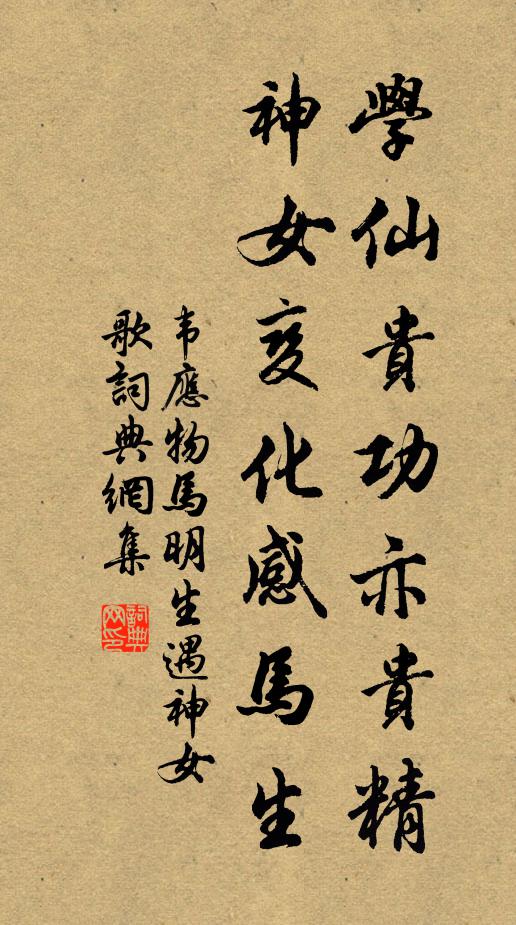 學仙貴功亦貴精
神女变化感馬生
韦應物馬明生遇神女
歌詞典網集
詞典网印